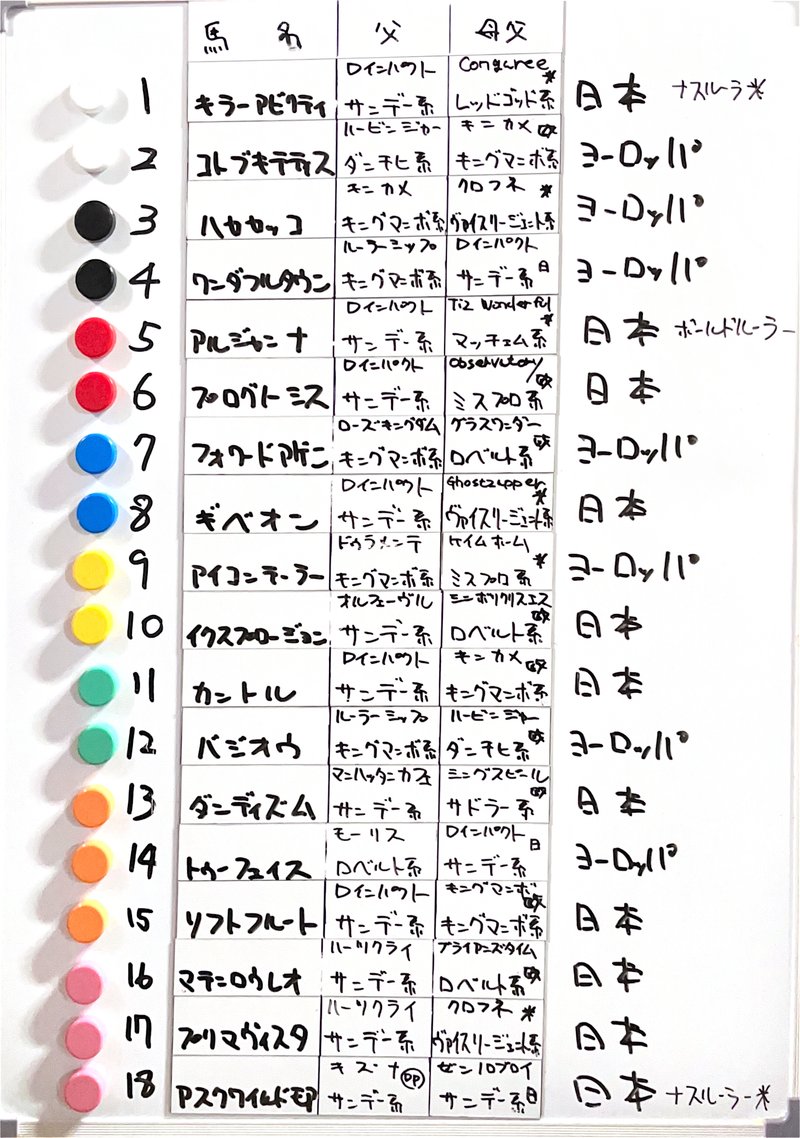 馬名 父 母父
Dインパクト Congaree ※
1 キラーアビリティ サンデー系 レッドゴッド系 日本 ナスルーラ米
ハービンジャー キンカメ 欧
2 コトブキテティス ダンチヒ系 キングマンボ系 ヨーロッパ
キンカメ クロフネ 米
3 ハヤヤッコ キングマンボ系 ヴァイスリージェント系 ヨーロッパ
ルーラーシップ Dインパクト
4 ワンダフルタウン キングマンボ系 サンデー系 日 ヨーロッパ
Dインパクト Tiz Wonderful 米
5 アルジャンナ サンデー系 マッチェム系 日本 ボールドルーラー
Dインパクト Observatory 欧
6 プログノーシス サンデー系 ミスプロ系 日本
ローズキングダム グラスワンダー 欧
7 フォワードアゲン キングマンボ系 ロベルト系 ヨーロッパ
Dインパクト Ghostzapper 米
8 ギベオン サンデー系 ヴァイスリージェント系 日本
ドゥラメンテ ケイムホーム 米
9 アイコンテーラー キングマンボ系 ミスプロ系 ヨーロッパ
オルフェーヴル シンボリクリスエス 欧
10 イクスプロージョン サンデー系 ロベルト系 日本
Dインパクト キンカメ 欧
11 カントル サンデー系 キングマンボ系 日本
ルーラーシップ ハービンジャー 欧
12 バジオウ キングマンボ系 ダンチヒ系 ヨーロッパ
マンハッタンカフェ シングスピール 欧
13 ダンディズム サンデー系 サドラー系 日本
モーリス Dインパクト 日
14 トゥーフェイス ロベルト系 サンデー系 ヨーロッパ
Dインパクト キングマンボ 欧
15 ソフトフルート サンデー系 キングマンボ系 日本
ハーツクライ ブライアンズタイム 欧
16 マテンロウレオ サンデー系 ロベルト系 日本
ハーツクライ クロフネ 米
17 プリマヴィスタ サンデー系 ヴァイスリージェント系 日本
キズナ DP ゼンノロブロイ
18 アスクワイルドモア サンデー系 サンデー系 日 日本 ナスルーラー米